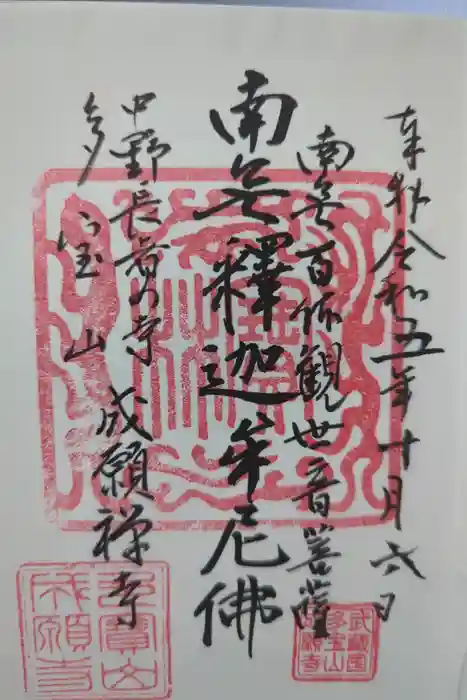 奉拝 令和五年十月六日
南無百体観世音菩薩
南無釋迦牟尼佛
中野長者の寺 成願禅寺
多宝山
武蔵国
多宝山
成願寺
多寶山
成願寺